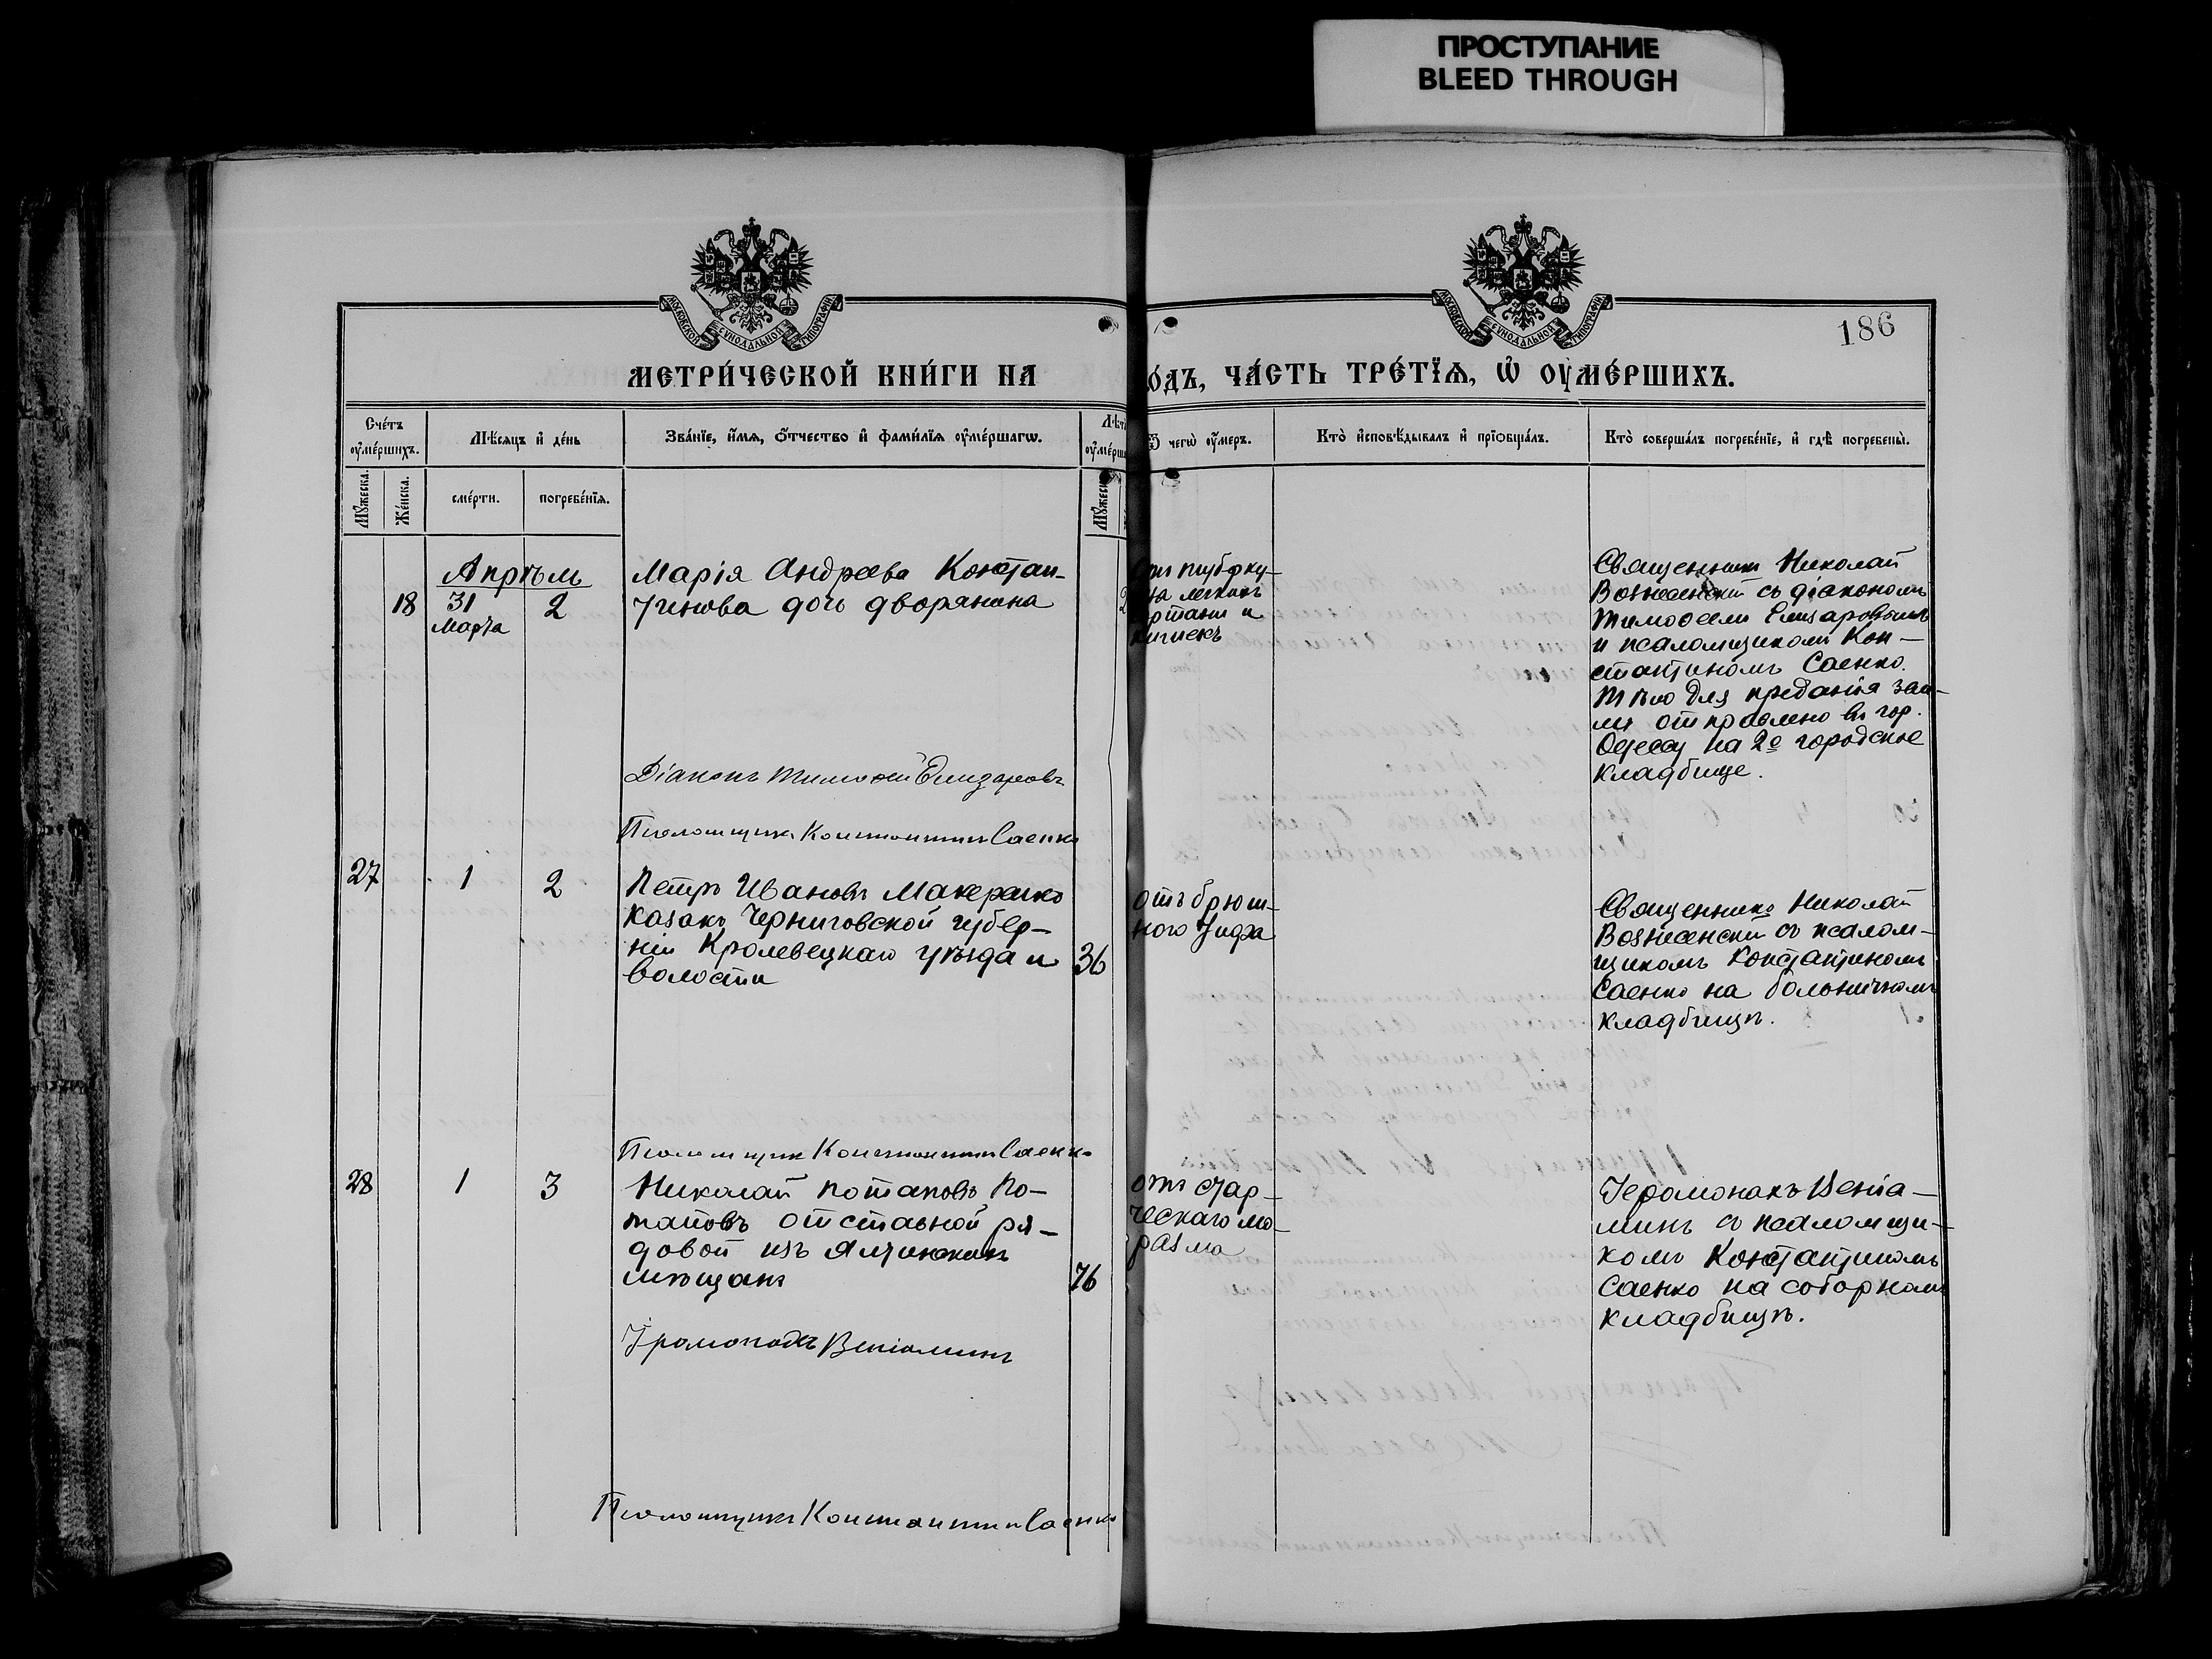 ПРОСТУПАНИЕ
BLEED THROUGH
186
МЕТРИ́ЧЕСКОЙ КНИ́ГИ НА
О́ДЪ, ЧА́СТЬ ТРЕ́ТЇѦ, Ѡ҆ ОУ҆МЕ́РШИХЪ.
Сче́тъ оу҆ме́ршихъ.
Мѣ́сяцъ и҆ де́нь
Зва́нїе, и҆́мѧ, ѻ҆́тчество и҆ фами́лїѧ оу҆ме́ршагѡ.
Лѣт
оу҆ме́рш
Ѿ чегѡ̀ оу҆́меръ.
Кто̀ и҆сповѣ́дывалъ и҆ прїѡбща́лъ.
Кто̀ соверша́лъ погребе́нїе, и҆ гдѣ̀ погребены̀.
Мꙋ́жеска.
Же́нска.
сме́рти.
погребе́нїѧ.
Мꙋ́жеск
Апрѣль
18
31
Марта
2
Марія Андреева Констан-
тинова дочь дворянина
отъ туберку-
за легкихъ
ортани и
кишекъ
Священникъ Николай
Вознесенскій съ діакономъ
Тимофеемъ Елизаровымъ
и псаломщикомъ Кон-
стантиномъ Саенко.
Тѣло для преданія зем-
лѣ отправлено въ гор.
Одессу на 2е городское
кладбище.
Діаконъ Тимофей Елизаровъ
Псаломщикъ Константинъ Саенко
27
1
2
Петръ Ивановъ Макеренко
казакъ Черниговской губер-
ніи Кролевецкаго уѣзда и
волости
36
отъ брюш-
ного тифа
Священникъ Николай
Вознесенскій съ псалом-
щикомъ Константиномъ
Саенко на больничномъ
кладбищѣ.
Псаломщикъ Константинъ Саенко
28
1
3
Николай Потаповъ По-
таповъ отставной ря-
довой изъ Ялтинскихъ
мѣщанъ
76
отъ стар-
ческаго ма-
разма
Іеромонахъ Веніа-
минъ съ псаломщи-
комъ Константиномъ
Саенко на соборномъ
кладбищѣ.
Іеромонахъ Веніаминъ
Псаломщикъ Константинъ Саенко